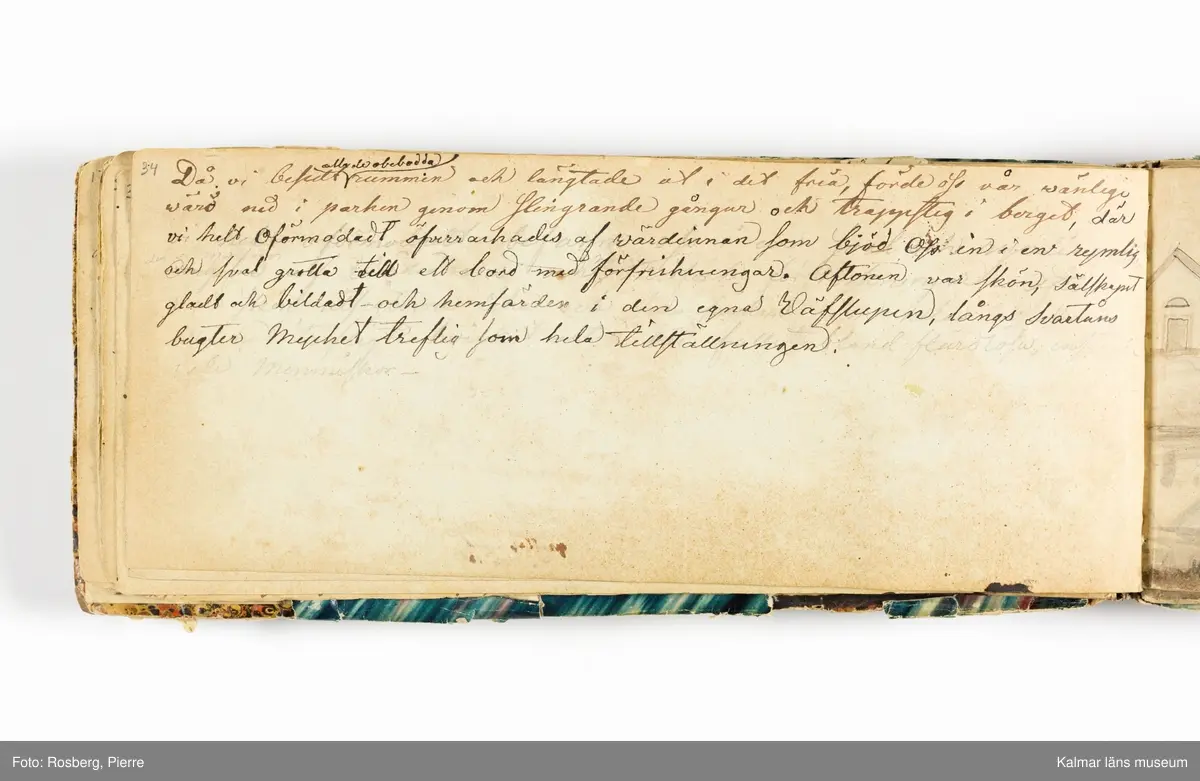 34
alla de obebodda
Då vi besedt rummen och längtade ut i det fria, förde oss vår vänlige
värd ned i parken genom slingrande gångar och trappsteg i berget, där
vi helt oförmodadt öfverraskades af värdinnan som bjöd oss in i en rymlig
och sval grotta till ett bord med förfriskningar. Aftonen var skön, sälskapet
gladt och bildadt – och hemfärden i den egna Väfslupen, långs Svartåns
bugter Mycket treflig som hela tillställningen.
Menniskor –
Foto: Rosberg, Pierre
Kalmar läns museum